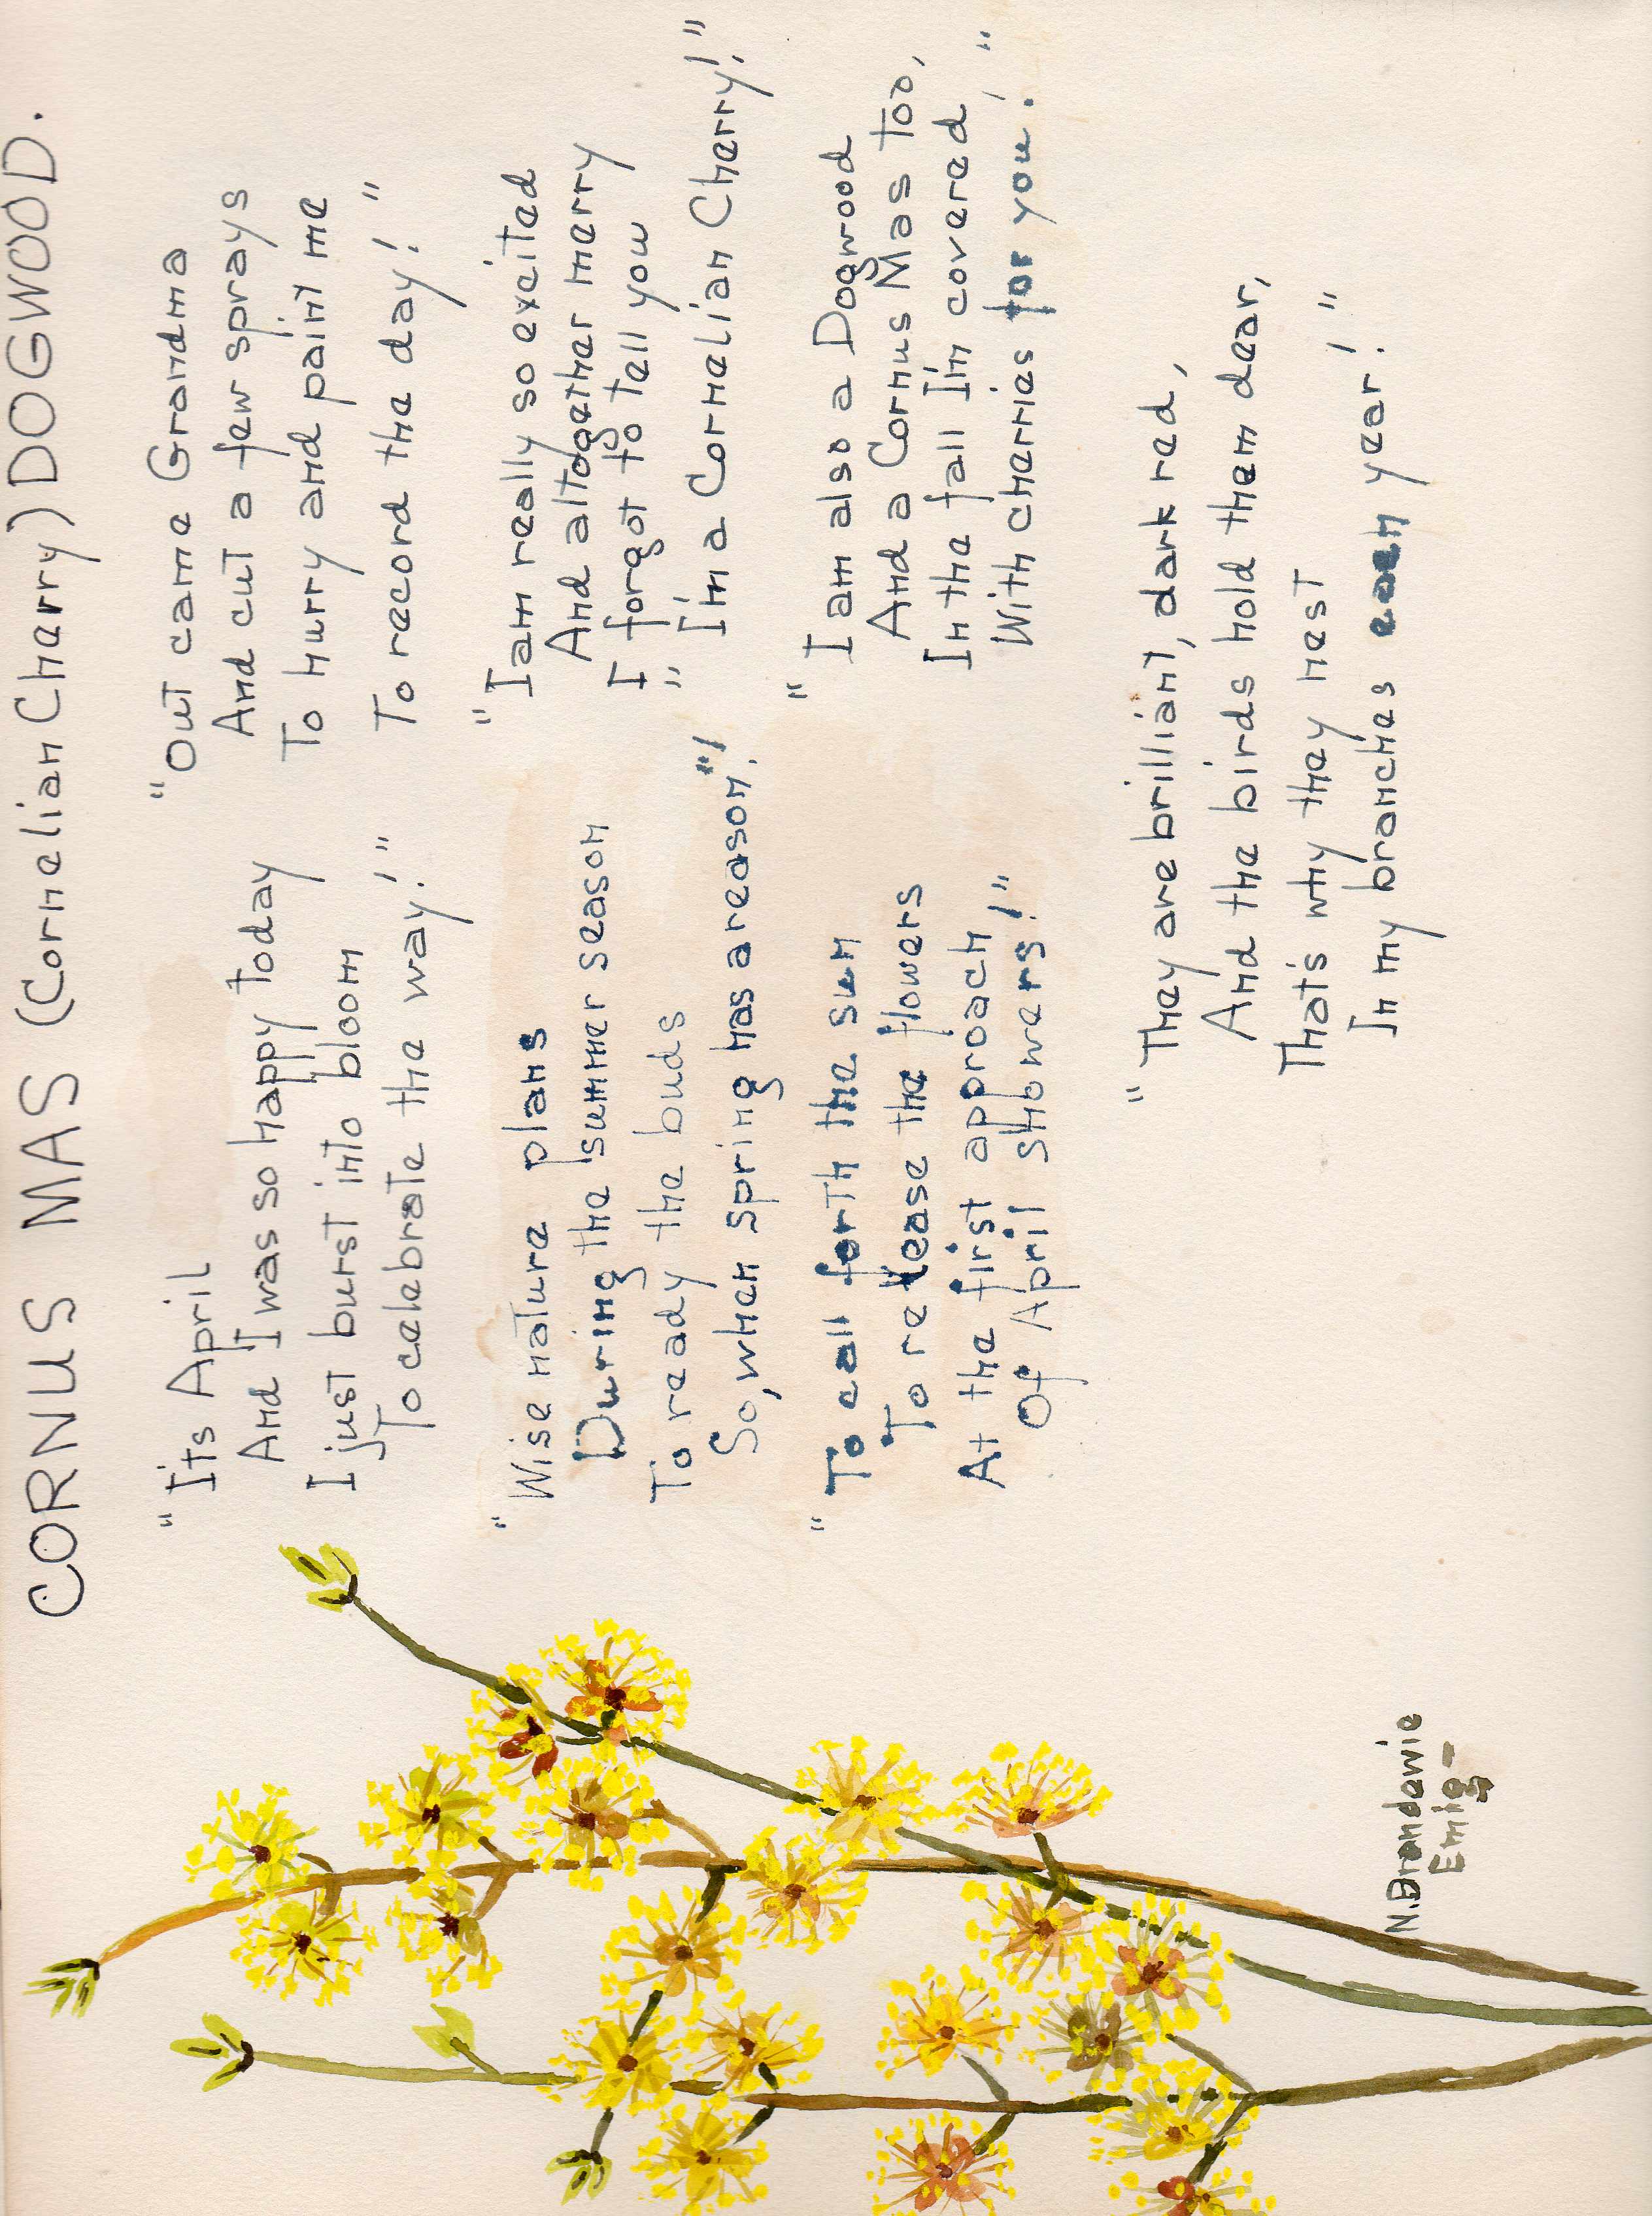 CORNUS MAS (Cornelian Cherry) DOGWOOD.
"It's April
And I was so happy today
I just burst into bloom
To celebrate the way!"
"Wise nature plans
During the summer season
To ready the buds
So, when spring has a reason"!
"To call forth the sun
To release the flowers
At the first approach
Of April showers!"
"Out came Grandma
And cut a few sprays
To hurry and paint me
To record the day!"
"I am really so excited
And altogether merry
I forgot to tell you
"I'm a Cornelian Cherry!"
"I am also a Dogwood
And a Cornus Mas too,
In the fall I'm covered,
With cherries for you."
"They are brilliant, dark red,
And the birds hold them dear,
That's why they nest
In my branches each year!"
N. Brandawie
Emig